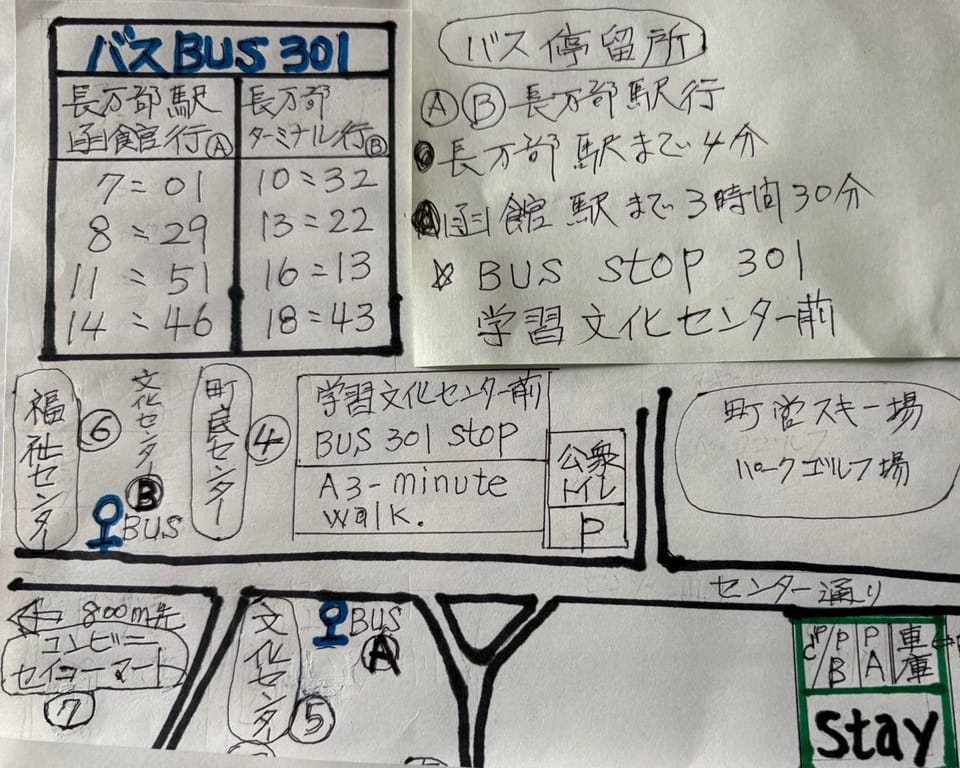 バス BUS 301
長万部駅
函館行Ⓐ
長万部
ターミナル行Ⓑ
7:01
8:29
11:51
14:46
10:32
13:22
16:13
18:43
バス停留所
ⒶⒷ長万部駅行
長万部駅まで4分
函館駅まで3時間30分
☆ BUS stop 301
学習文化センター前
福祉センター
⑥
文化センター
Ⓑ
BUS
町民センター
④
学習文化センター前
BUS 301 stop
A 3-minute
walk.
公衆
トイレ
P
町営スキー場
パークゴルフ場
センター通り
⇐ 800m先
コンビニ
セイコーマート
⑦
文化センター
⑤
BUS
A
P
C
P
B
P
A
車庫
stay